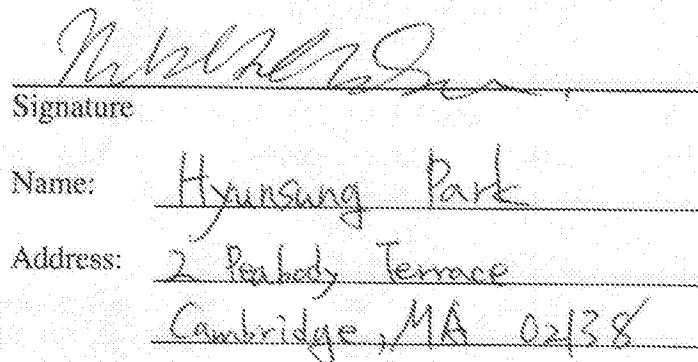 Signature
Name: Hyunsung Park
Address: 2 Peabody Terrace
Cambridge, MA 02138